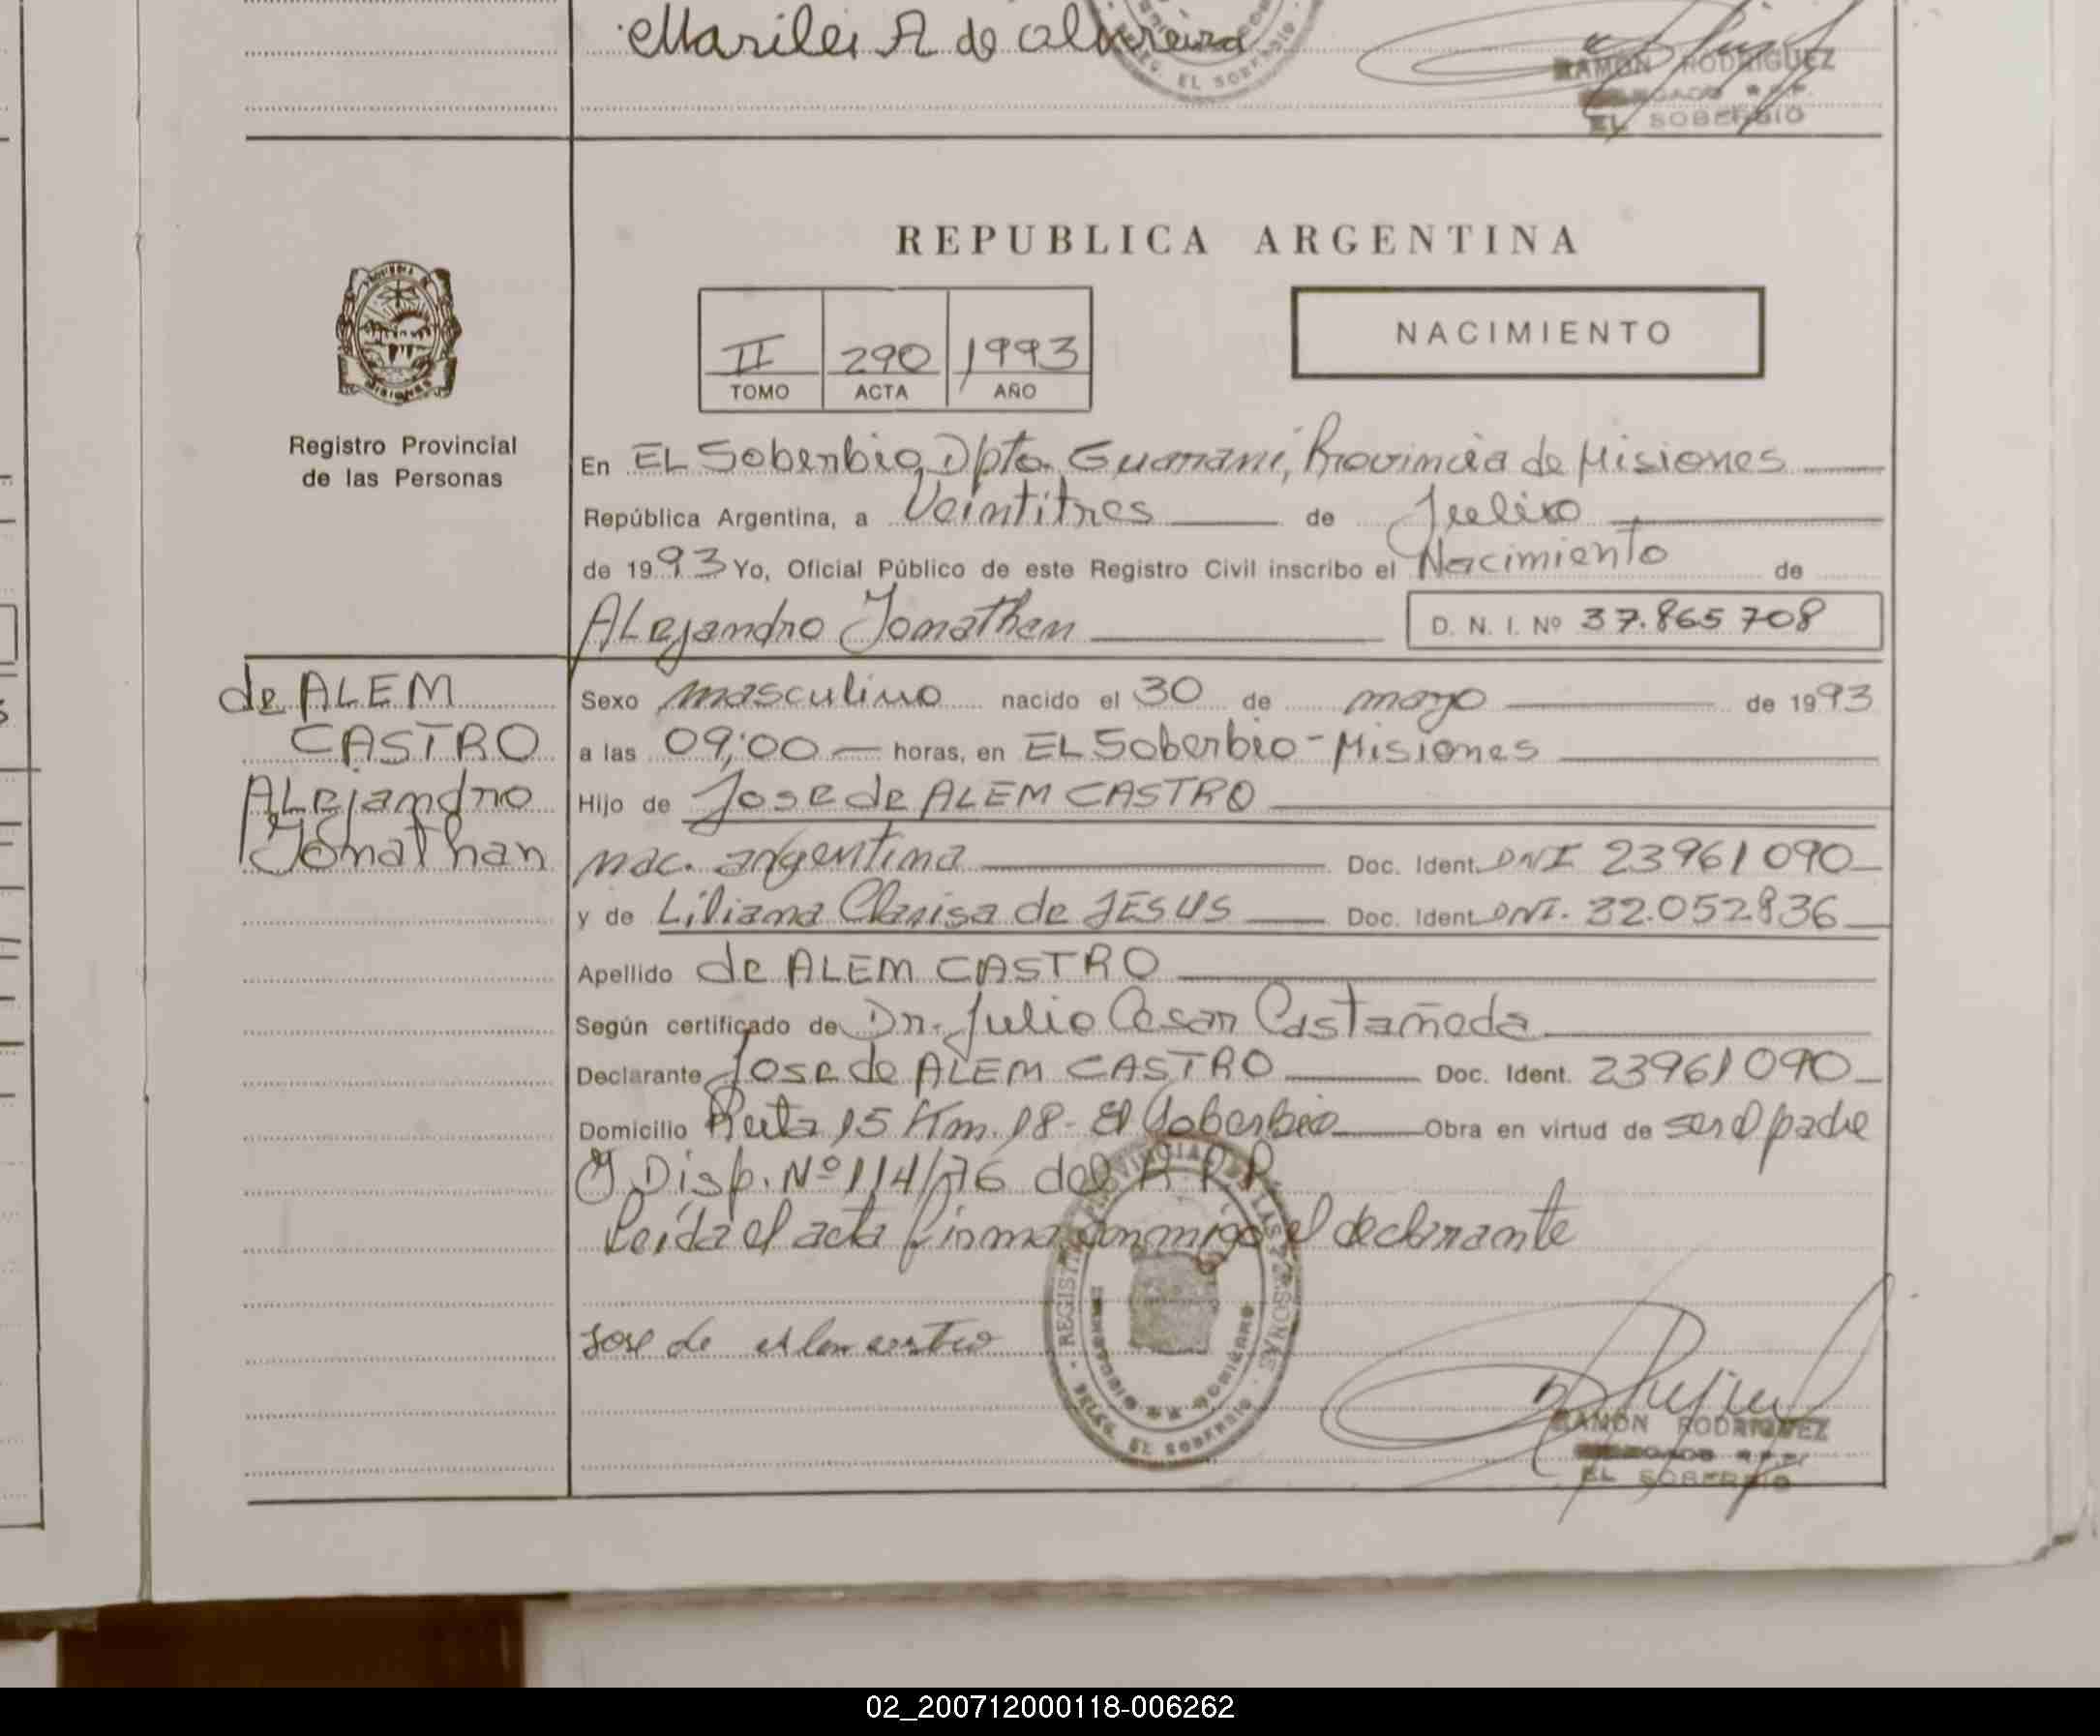 Marilei A de Oliveira
RAMON RODRIGUEZ
EL SOBERBIO
REPUBLICA ARGENTINA
II 290 1993
TOMO ACTA AÑO
NACIMIENTO
Registro Provincial
de las Personas
En EL Soberbio, Dpto. Guarani, Provincia de Misiones
República Argentina, a Veintitres de Julio
de 1993 Yo, Oficial Público de este Registro Civil inscribo el Nacimiento de
Alejandro Jonathan D. N. I. Nº 37.865708
de ALEM
CASTRO
Alejandro
Jonathan
Sexo masculino nacido el 30 de mayo de 1993
a las 09:00 horas, en EL Soberbio - Misiones
Hijo de Jose de ALEM CASTRO
nac. argentina Doc. Ident. DNI 23961090
y de Liliana Clarisa de JESUS Doc. Ident. DNI. 32.052836
Apellido de ALEM CASTRO
Según certificado de Dr. Julio Cesar Castañeda
Declarante Jose de ALEM CASTRO Doc. Ident. 23961090
Domicilio Ruta 15 Km. 18 - El Soberbio Obra en virtud de ser el padre
y Disp. Nº 114/76 del R.P.P.
Leída el acta firma conmigo el declarante
Jose de Alem castro
REGISTRO PROVINCIAL DE LAS PERSONAS
DELEG. EL SOBERBIO
RAMON RODRIGUEZ
EL SOBERBIO
02_200712000118-006262